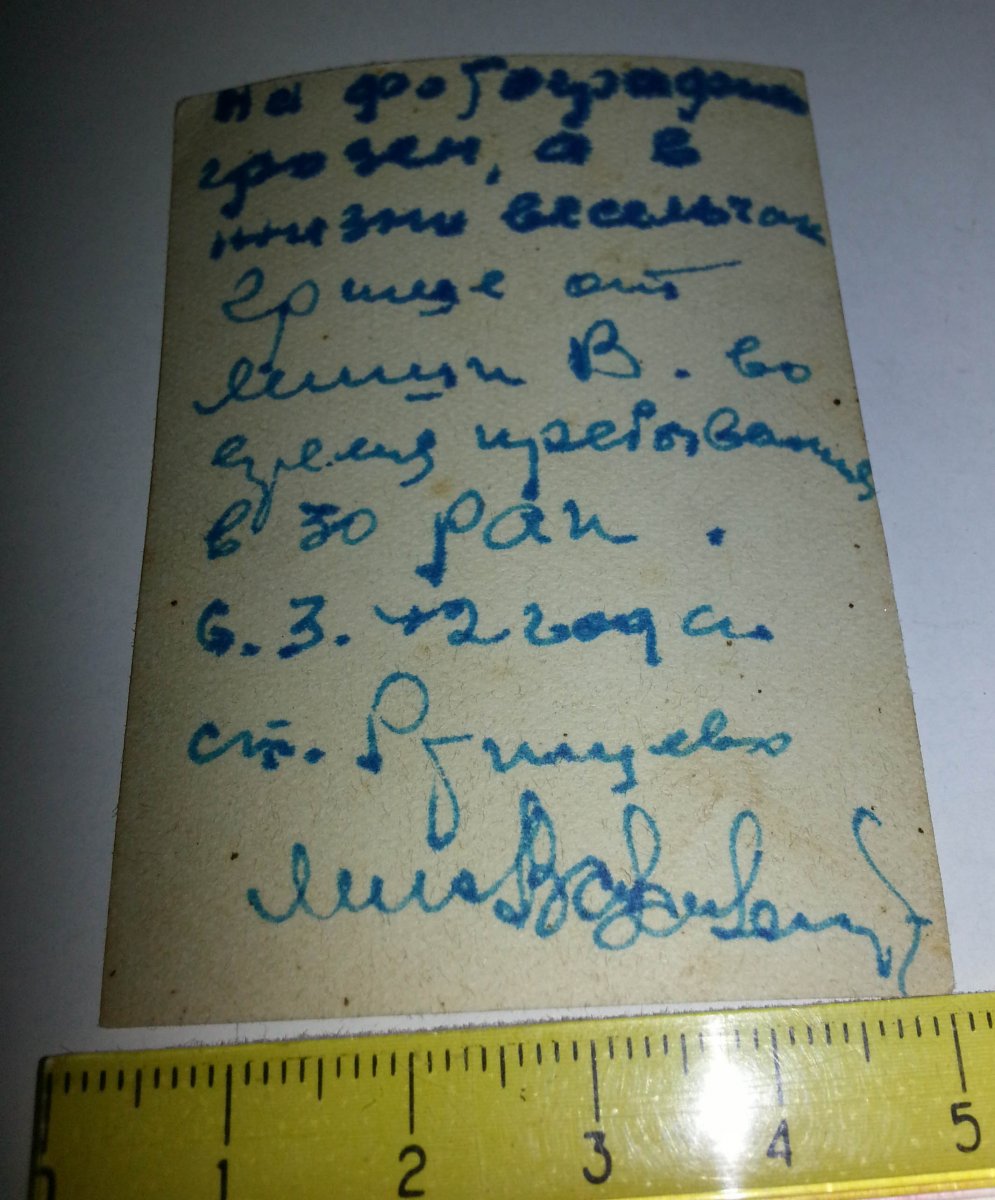 на фотографии
грозен, а в
жизни весельчак
Грише от
Миши В. во
время пребывания
в 30 рап.
6.3.42 года
ст. Ртищево
1 2 3 4 5